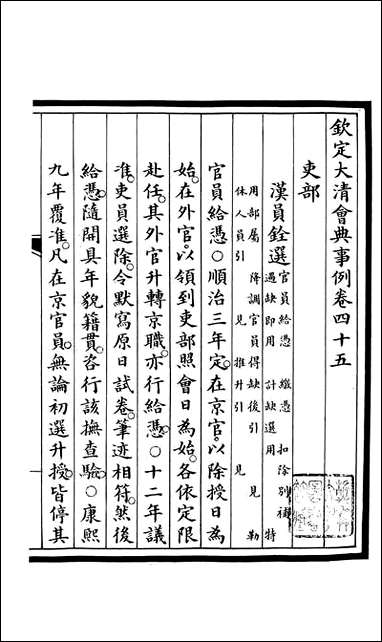 欽定大清會典事例卷四十五
吏部
漢員銓選官員給憑 繳憑 扣除別補 特
遇缺即用 計缺選用
用部屬 降調官員得缺後引 見 勒
休人員引 見 推升引 見
官員給憑○順治三年定在京官以除授日為
始在外官以領到吏部照會日為始各依定限
赴任其外官升轉京職亦行給憑○十二年議
准吏員選除令默寫原日試卷筆迹相符然後
給憑隨開具年貌籍貫咨行該撫查驗○康熙
九年覆准凡在京官員無論初選升授皆停其